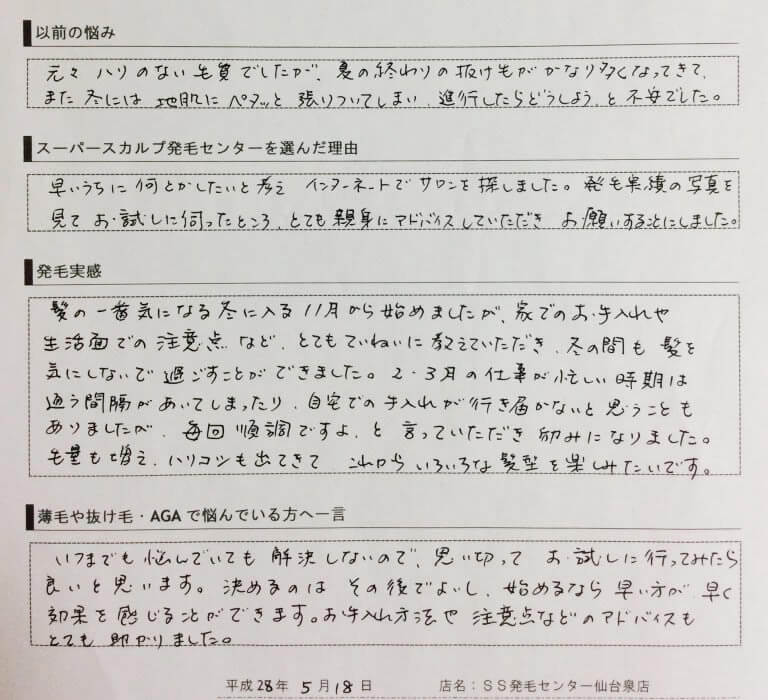 以前の悩み
元々 ハリのない毛質でしたが、夏の終わりの抜け毛がかなり多くなってきて、
また 冬には 地肌に ペタッと 張りついてしまい、進行したらどうしよう、と 不安でした。
スーパースカルプ発毛センターを選んだ理由
早いうちに 何とかしたいと考え インターネットで サロンを探しました。発毛実績の写真を
見て お試しに伺ったところ、とても親身にアドバイスしていただき お願いすることにしました。
発毛実感
髪の一番気になる冬に入る 11月から始めましたが、家でのお手入れや
生活面での 注意点 など、とてもていねいに 教えていただき、冬の間も 髪を
気にしないで 過ごすことができました。2・3月の仕事が忙しい時期は
通う間隔があいてしまったり、自宅での手入れが行き届かないと思うことも
ありましたが、毎回 順調ですよ、と 言っていただき 励みになりました。
毛量も増え、ハリコシも出てきて これから いろいろな 髪型を楽しみたいです。
薄毛や抜け毛・AGAで悩んでいる方へ一言
いつまでも 悩んでいても 解決しないので、思い切って お試しに行ってみたら
良いと思います。決めるのは その後でよいし、始めるなら 早い方が 早く
効果を感じることができます。お手入れ方法や 注意点などのアドバイスも
とても 助かりました。
平成28年 5月18日 店名：SS発毛センター仙台泉店